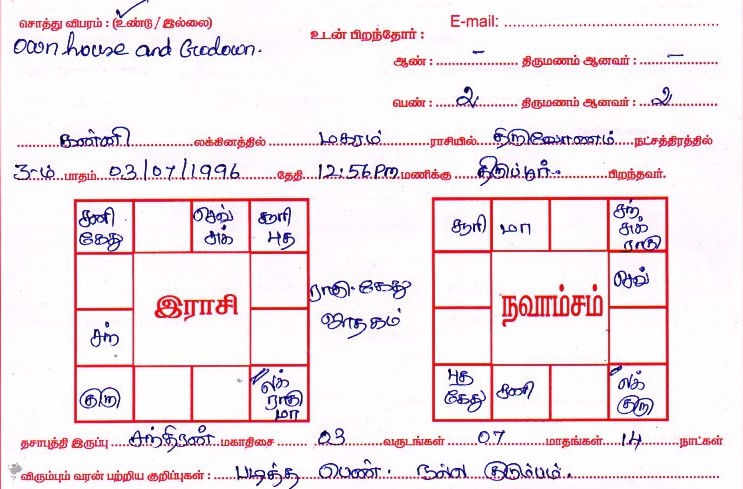 சொத்து விபரம் : (உண்டு / இல்லை)
Own house and Godown.
E-mail:
உடன் பிறந்தோர் :
ஆண் : – திருமணம் ஆனவர் : –
பெண் : 2 திருமணம் ஆனவர் : 2
கன்னி லக்கினத்தில் மகரம் ராசியில் திருவோணம் நட்சத்திரத்தில்
3-ம் பாதம் 03/07/1996 தேதி 12:56 Pm மணிக்கு திருப்பூர். பிறந்தவர்.
சனி கேது செவ் சுக் சூரி புத
இராசி
சந்
குரு லக் ராகு மா
ராகு-கேது
ஜாதகம்
சூரி மா சந் சுக் ராகு
செவ்
நவாம்சம்
புத கேது சனி லக் குரு
தசாபுத்தி இருப்பு சந்திரன் மகாதிசை 03 வருடங்கள் 07 மாதங்கள் 14 நாட்கள்
விரும்பும் வரன் பற்றிய குறிப்புகள் : படித்த பெண். நல்ல குடும்பம்.